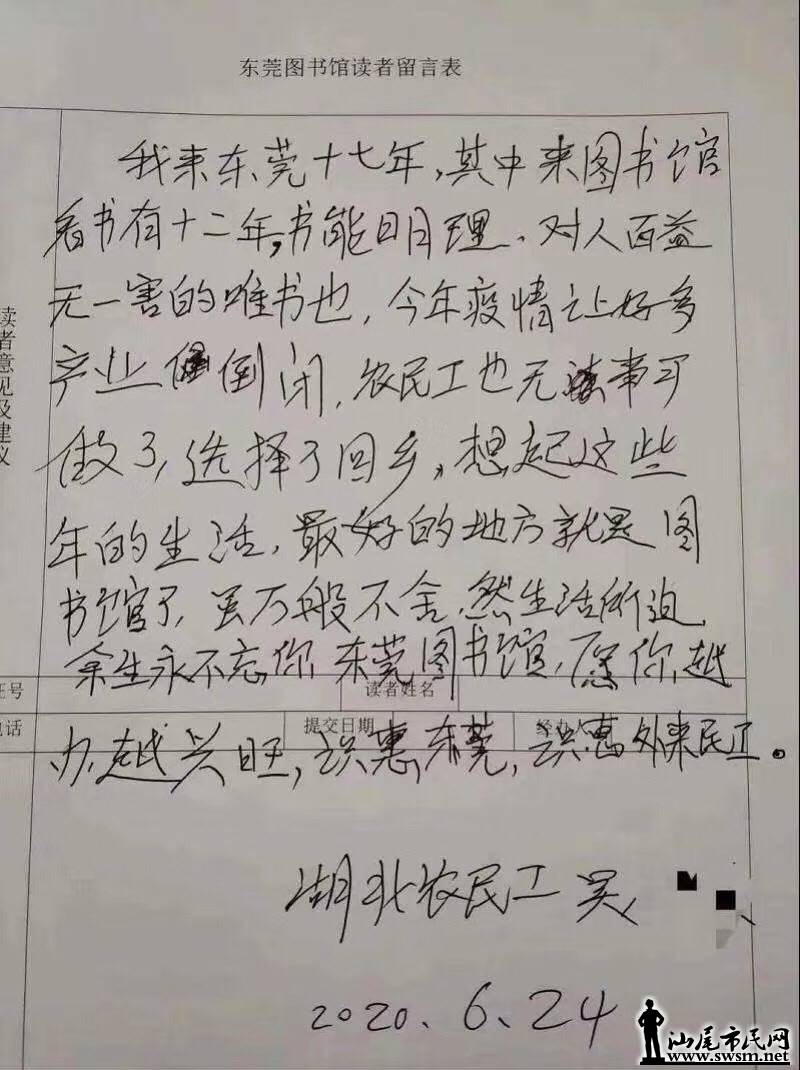 东莞图书馆读者留言表
我来东莞十七年,其中来图书馆
看书有十二年,书能明理、对人百益
无一害的唯书也,今年疫情让好多
产业倒闭,农民工也无事可
做了,选择了回乡,想起这些
年的生活,最好的地方就是图
书馆了,虽万般不舍,然生活所迫,
余生永不忘你东莞图书馆,愿你越
办越兴旺,识惠东莞,识惠外来民工。
读者意见及建议
证号
读者姓名
电话
提交日期
经办人
湖北农民工 吴
2020、6、24
汕尾市民网
www.swsm.net